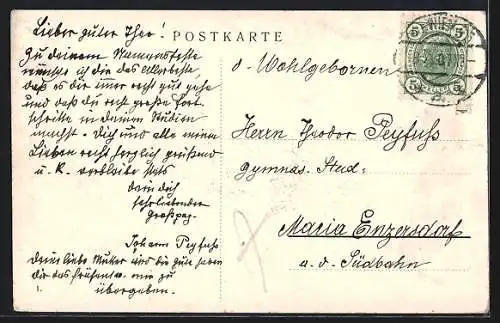 Lieber guter Theo!
POSTKARTE
Zu deinem Namensfeste
wünsche ich dir das Allerbeste,
daß es dir immer recht gut gehe
und daß du recht große Fort-
schritte in deinen Studien
machst. Dich und alle meine
Lieben recht herzlich grüßend
u. K. verbleibe stets
dein dich
liebender
Großpap.
Johann Peyfuss
Deine liebe Mutter wird die Güte haben
dir das Präsent mir zu
übergeben.
1.
d. Wohlgebornen
Herrn Theodor Peyfuss
Gymnas. Stud.
Maria Enzersdorf
a. d. Südbahn
5 5
5 5
WIEN